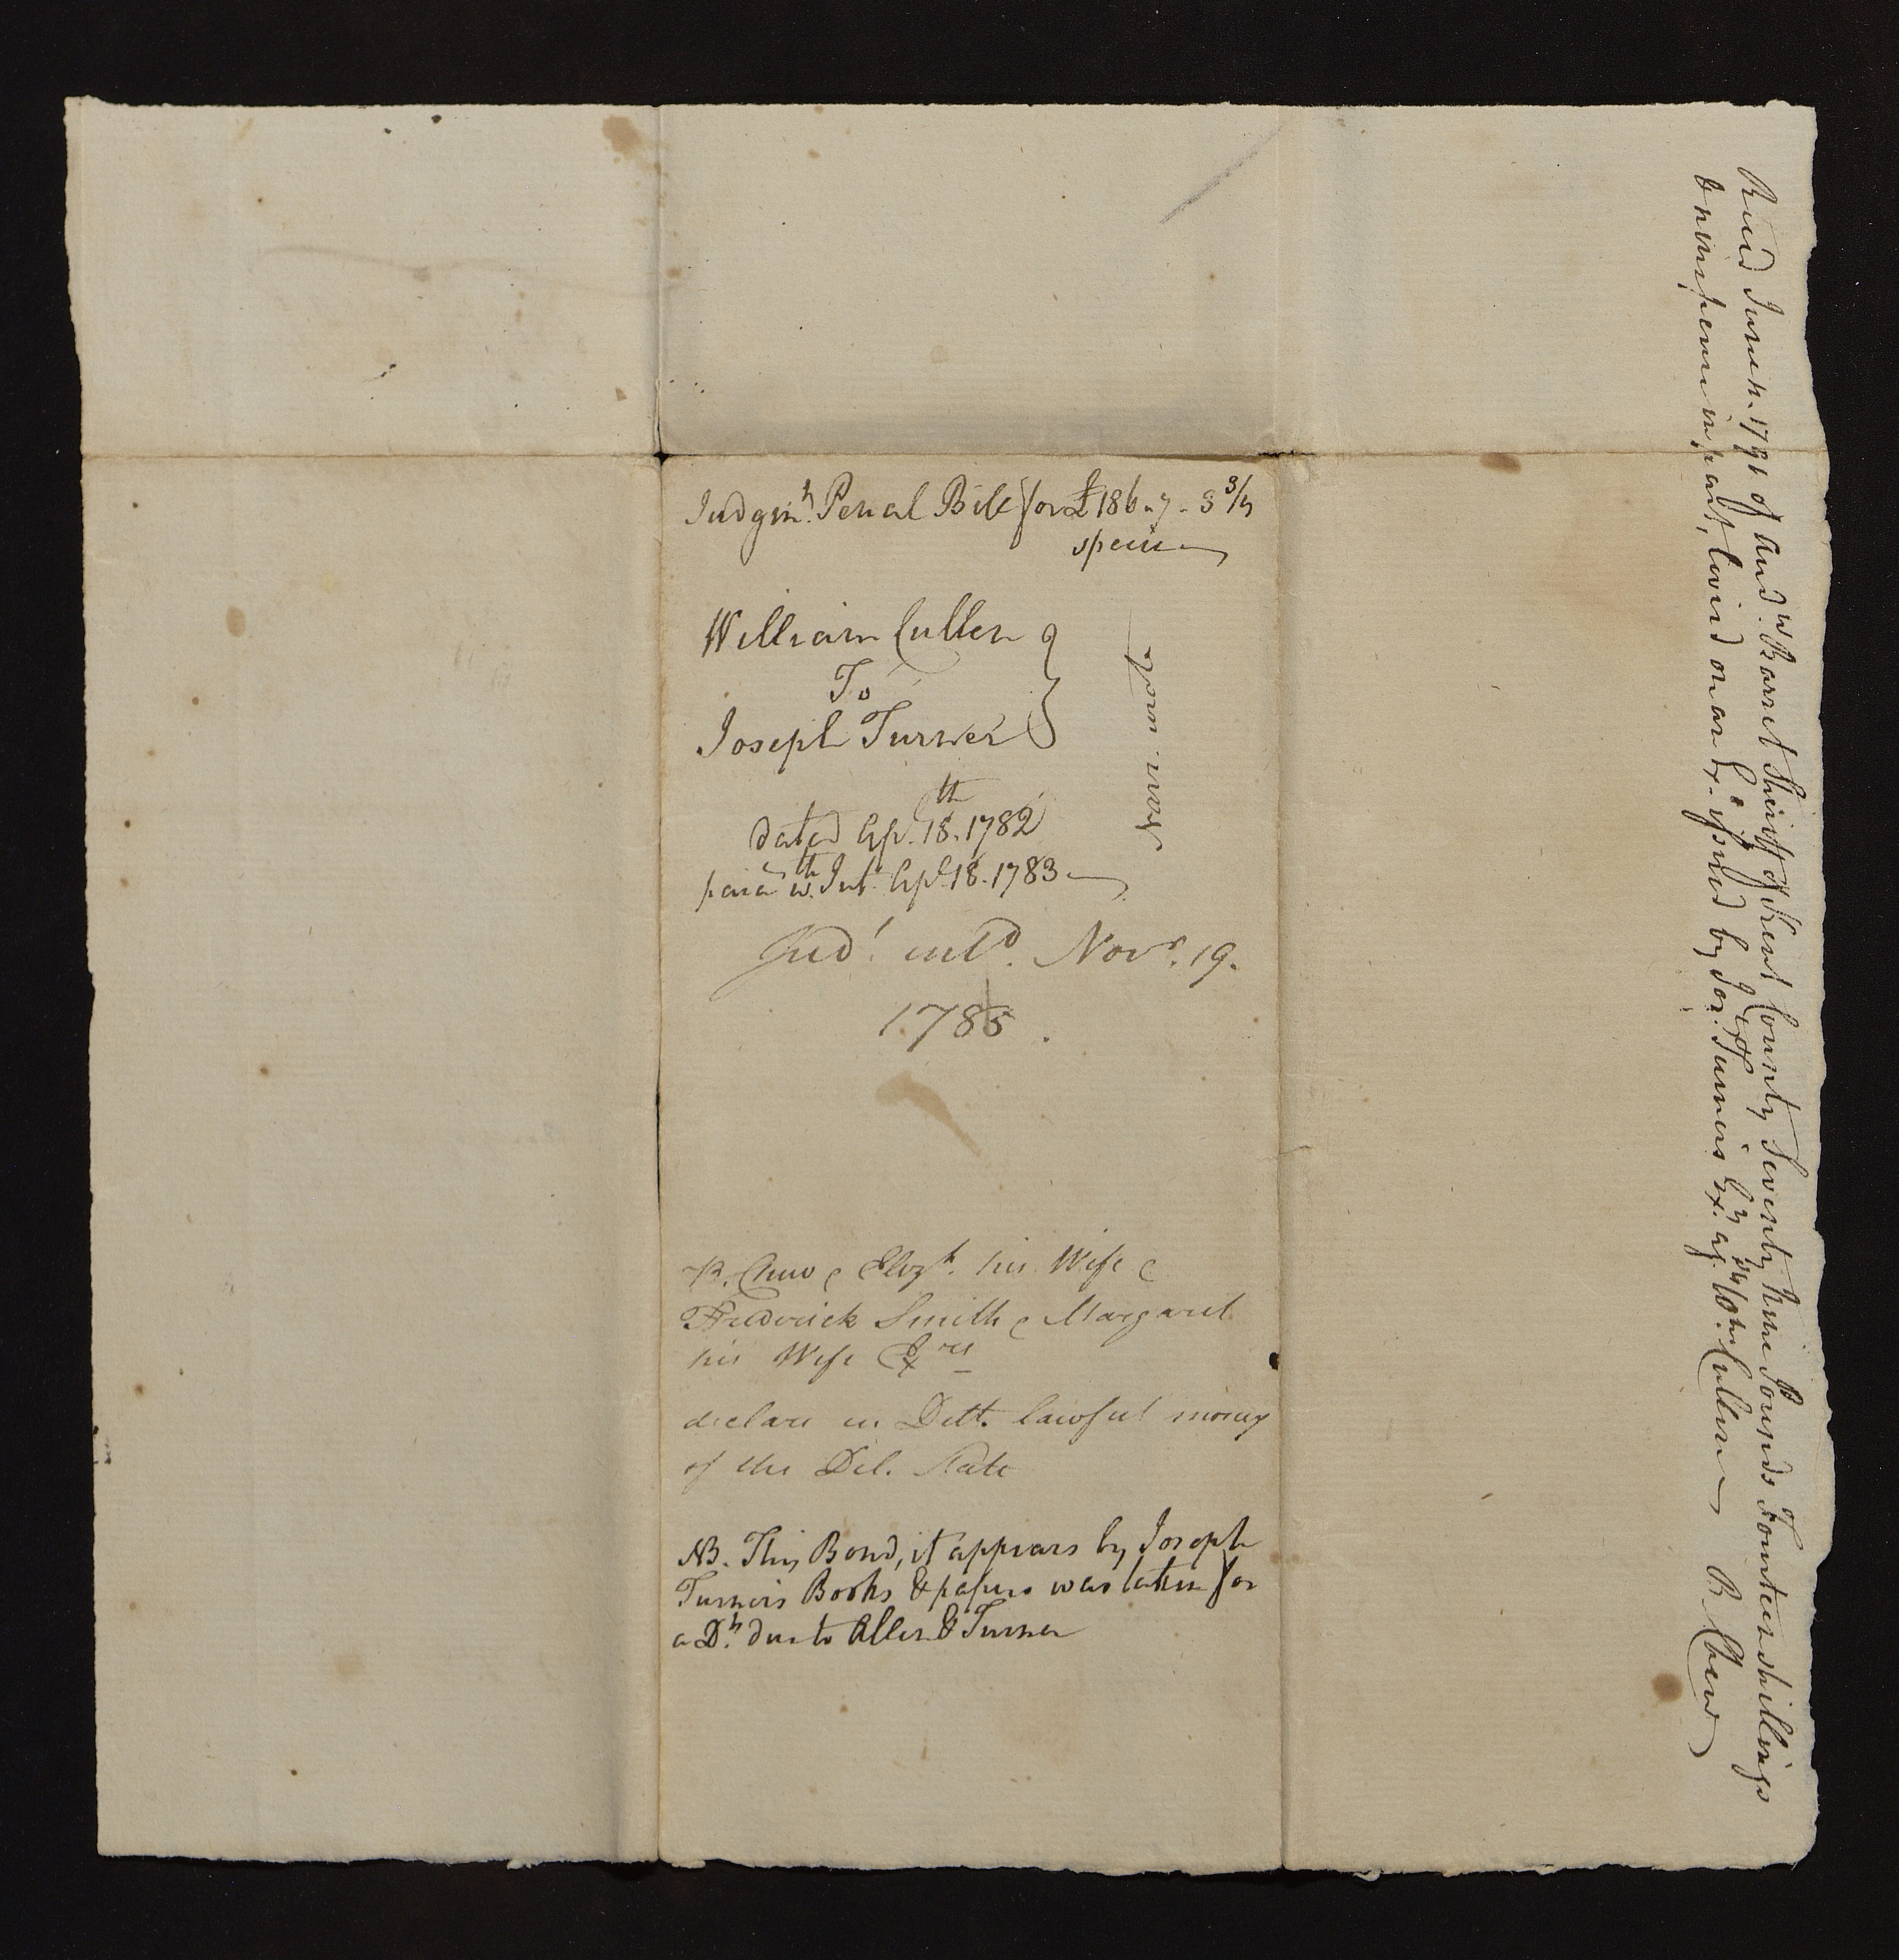 Judgmt. Penal Bill for £186.7.3 3/4
specie
William Cullen
To
Joseph Turner
dated Ap. 18th. 1782
paid wth. Int. Apl. 18. 1783
Nov. 
Judt. entd. Novr. 19.
1785.
B. Chew & Elizth. his Wife &
Frederick Smith & Margaret
his Wife Exrs
declare in Debt. lawful money
of the Del. State
NB. This Bond, it appears by Joseph
Turners Books & papers was taken for
a Dt. due to Allen & Turner
Recd June 1791 of Andw. Barret Sheriff of Kent County Seventy nine Pounds Fourteen shillings
& nine pence in part, levied on an Ex. issued by Jos. Turners Ex. agt. Wm. Cullen B Chew